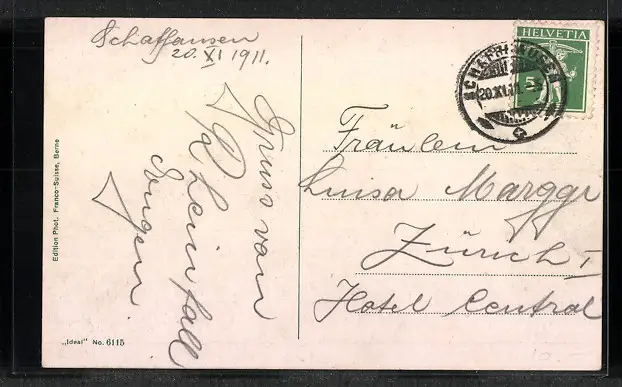 Schaffausen
20. XI 1911.
Gruss van
Rheinfall
Eugen.
Fräulein
Luisa Marggi
Zürich I
Hotel Central
HELVETIA
5
SCHAFFHAUSEN
20.XI.11.
Edition Phot. Franco-Suisse, Berne
„Ideal" No. 6115
10.-